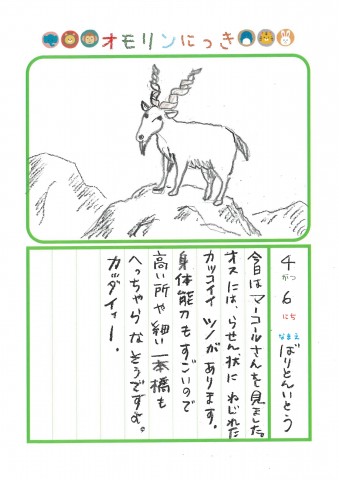 オモリンにっき
4がつ6にち
なまえ ばりとんいとう
今日はマーコールさんを見ました。
オスには、らせん状にねじれた
カッコイイツノがあります。
身体能力もすごいので
高い所や細い一本橋も
へっちゃらなそうですよ。
カッダイィー。